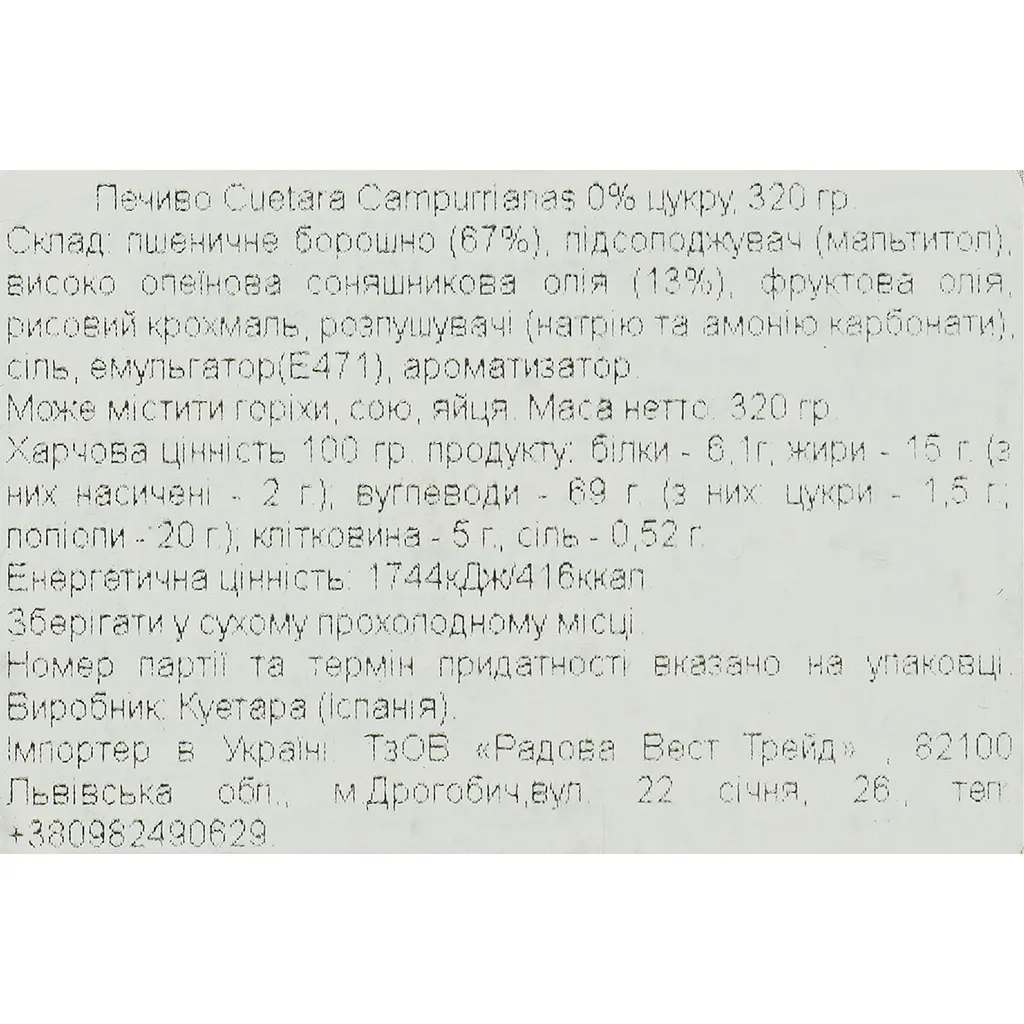 Печиво Cuetara Campurrianas 0% цукру, 320 гр.
Склад: пшеничне борошно (67%), підсолоджувач (мальтитол),
високо олеїнова соняшникова олія (13%), фруктова олія,
рисовий крохмаль, розпушувачі (натрію та амонію карбонати),
сіль, емульгатор(Е471), ароматизатор.
Може містити горіхи, сою, яйця. Маса нетто: 320 гр.
Харчова цінність 100 гр. продукту: білки - 6,1г; жири - 15 г. (з
них насичені - 2 г.); вуглеводи - 69 г. (з них: цукри - 1,5 г.;
поліоли - 20 г.); клітковина - 5 г., сіль - 0,52 г.
Енергетична цінність: 1744кДж/416ккал
Зберігати у сухому прохолодному місці.
Номер партії та термін придатності вказано на упаковці.
Виробник: Куетара (Іспанія).
Імпортер в Україні: ТзОВ «Радова Вест Трейд» , 82100
Львівська обл., м.Дрогобич,вул. 22 січня, 26., тел:
+380982490629.